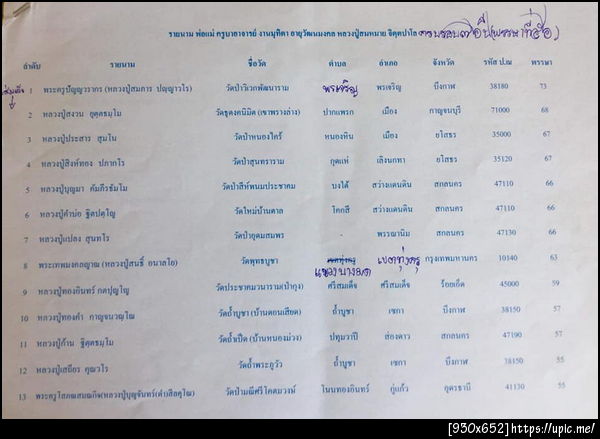 รายนาม พ่อแม่ ครูบาอาจารย์ งานมุทิตา อายุวัฒนมงคล หลวงปู่สมหมาย จิตฺตปาโล
ลำดับ รายนาม ชื่อวัด ตำบล อำเภอ จังหวัด รหัส ป.ณ พรรษา
1 พระครูปัญญาวรากร (หลวงปู่สมภาร ปญฺญาวโร) วัดป่าวิเวกพัฒนาราม พรเจริญ พรเจริญ บึงกาฬ 38180 73
2 หลวงปู่สงวน ยุตฺตธมฺโม วัดธุดงคนิมิต (เขาพรางล่าง) ปากแพรก เมือง กาญจนบุรี 71000 68
3 หลวงปู่ประสาร สุมโน วัดป่าหนองไคร้ หนองหิน เมือง ยโสธร 35000 67
4 หลวงปู่สิงห์ทอง ปภากโร วัดป่าสุนทราราม กุดแห่ เลิงนกทา ยโสธร 35120 67
5 หลวงปู่บุญมา คัมภีรธัมโม วัดป่าสีห์พนมประชาคม บงใต้ สว่างแดนดิน สกลนคร 47110 66
6 หลวงปู่คำบ่อ ฐิตปญฺโญ วัดใหม่บ้านตาล โคกสี สว่างแดนดิน สกลนคร 47110 66
7 หลวงปู่แปลง สุนทโร วัดป่าอุดมสมพร - พรรณานิคม สกลนคร 47130 66
8 พระเทพมงคลญาณ (หลวงปู่สนธิ์ อนาลโย) วัดพุทธบูชา แขวงบางมด เขตทุ่งครุ กรุงเทพมหานคร 10140 63
9 หลวงปู่ทองอินทร์ กตปุญฺโญ วัดประชาคมวนาราม(ป่ากุง) ศรีสมเด็จ ศรีสมเด็จ ร้อยเอ็ด 45000 59
10 หลวงปู่ทองคำ กาญจนวณฺโณ วัดถ้ำบูชา (บ้านดอนเสียด) ถ้ำบูชา เซกา บึงกาฬ 38150 57
11 หลวงปู่ก้าน ฐิตธมฺโม วัดถ้ำเป็ด (บ้านหนองม่วง) ปทุมวาปี ส่องดาว สกลนคร 47190 57
12 หลวงปู่เสถียร คุณวโร วัดถ้ำพระภูวัว ถ้ำบูชา เซกา บึงกาฬ 38150 55
13 พระครูโสภณสมณกิจ(หลวงปู่บุญจันทร์) วัดป่ามณีศรีโคตมวงษ์ โนนทองอินทร์ กู่แก้ว อุดรธานี 41130 55
[930x652]https://upic.me/